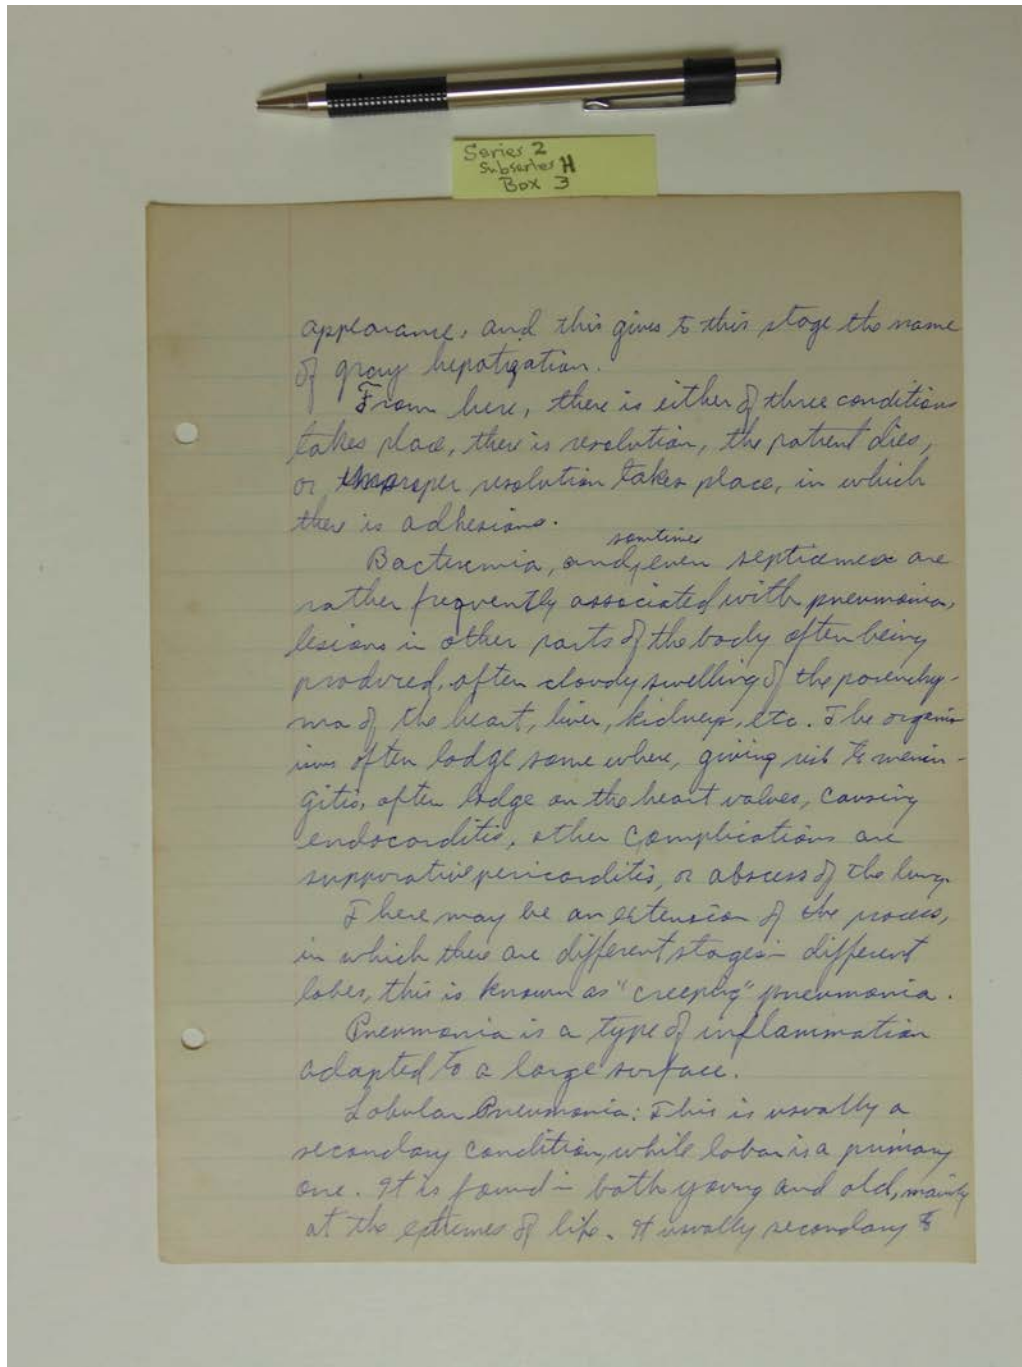 Series 2
Subseries H
Box 3
appearance, and this gives to this stage the name
of gray hepatization.
From here, there is either of three conditions
takes place, there is resolution, the patient dies,
or improper resolution takes place, in which
there is adhesions.
somtimes
Bacteremia, and even septicemea are
rather frequently associated with pneumonia,
lesions in other parts of the body often being
produced, often cloudy swelling of the parenchy-
ma of the heart, liver, kidneys, etc. The organis
often lodge some where, giving to menin-
gitis, often lodge on the heart valves, causing
endocarditis, other complications are
suppurative pericarditis, or abscess of the lung.
There may be an extension of the process,
in which there are different stages in different
lobes, this is known as "creeping" pneumonia.
Pneumonia is a type of inflammation
adapted to a large surface.
Lobular Pneumonia: This is usually a
secondary condition, while lobar is a primary
one. It is found in both young and old, mainly
at the extremes of life. It usually secondary to